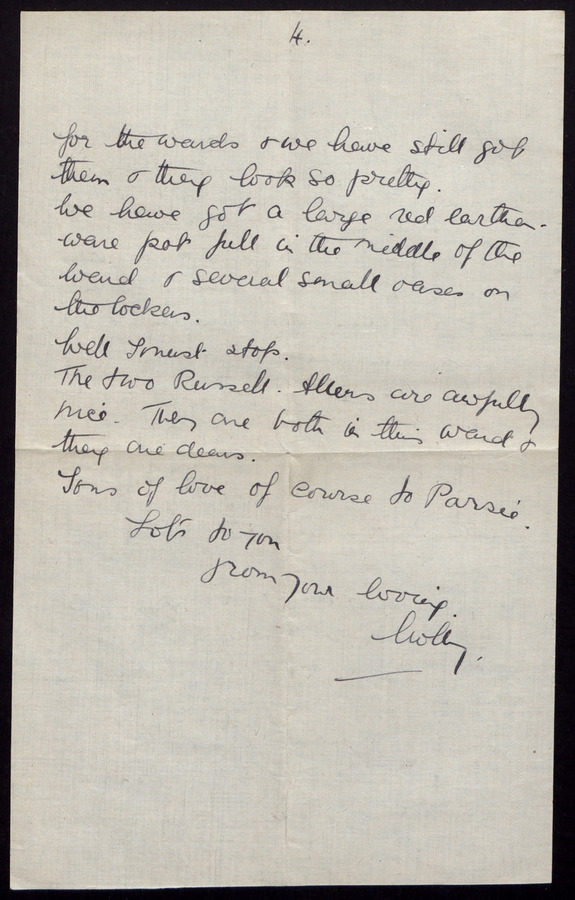 4.
for the wards & we have still got
them & they look so pretty.
We have got a large red earthen-
ware pot full in the middle of the
Ward & several small vases on
the lockers.
Well I must stop.
The two Russell. Allens are awfully
nice. They are both in this ward &
they are dears.
Tons of love of course to Parsie.
Lots to you
from your loving.
Molly.